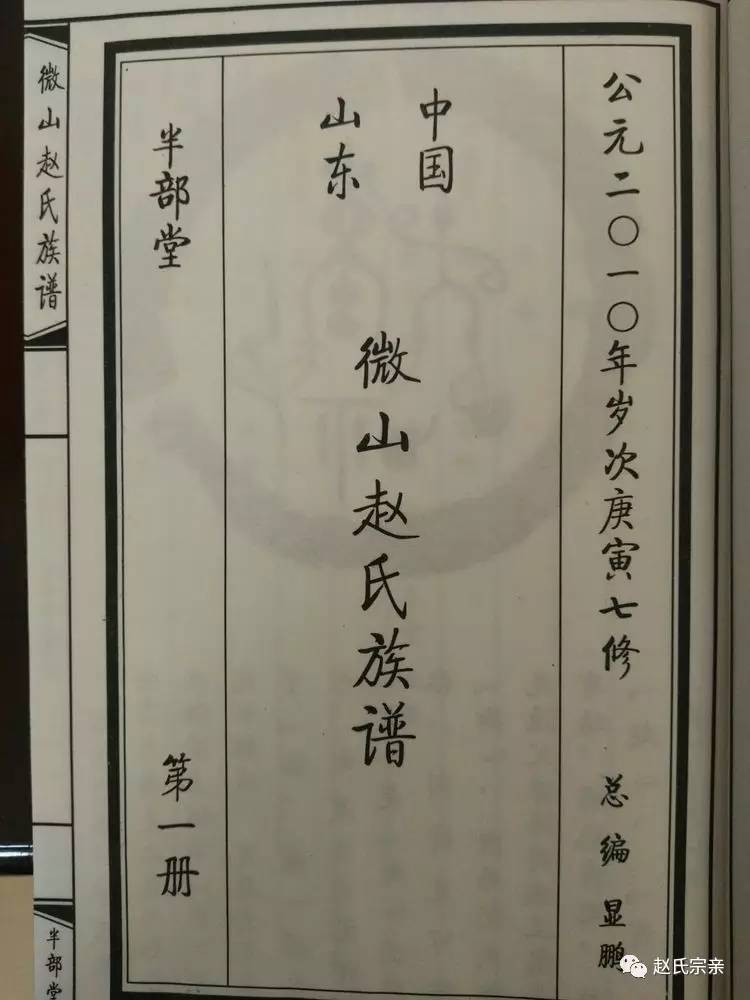 公元二〇一〇年岁次庚寅七修 总编 显鹏
中国
山东
微山赵氏族谱
半部堂 第一册
微山赵氏族谱
半部堂
赵氏宗亲